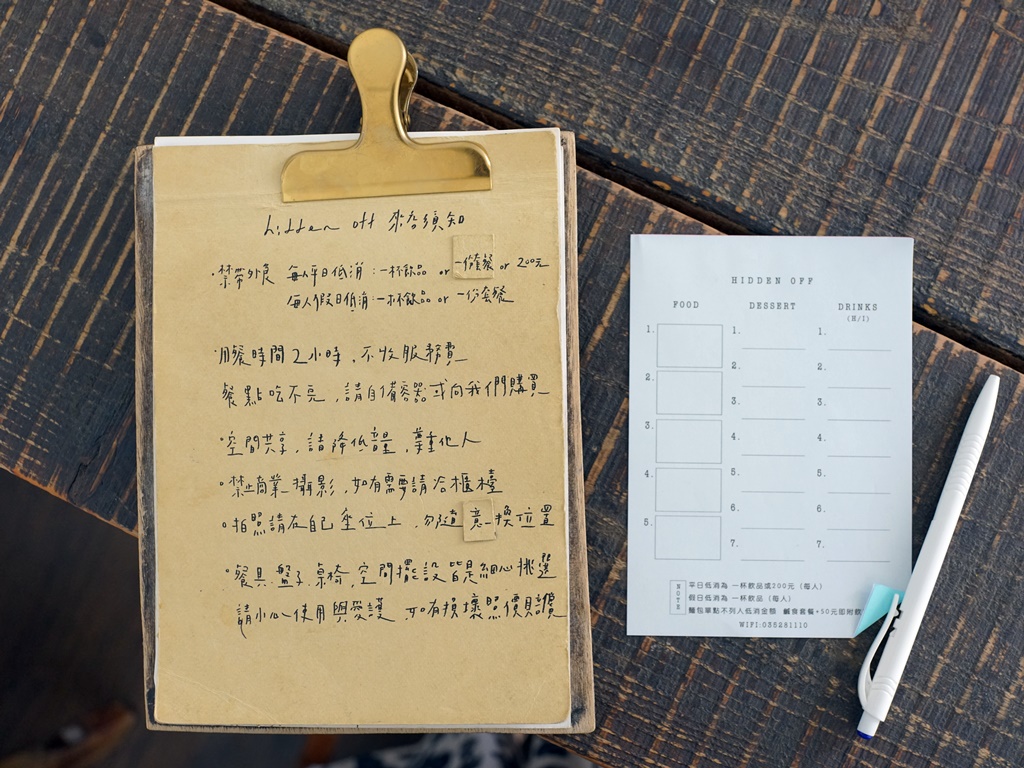 hidden off 來客須知
·禁帶外食 每人平日低消:一杯飲品 or 一份套餐 or 200元
每人假日低消:一杯飲品 or 一份套餐
·用餐時間2小時,不收服務費
餐點吃不完,請自備容器或向我們購買
·空間共享,請降低音量,尊重他人
·禁止商業攝影,如有需要請洽櫃檯
·拍照請在自己座位上,勿隨意換位置
·餐具、盤子、桌椅、空間擺設皆是細心挑選
請小心使用與愛護,如有損壞照價賠償
HIDDEN OFF
FOOD DESSERT DRINKS
(H/I)
1. 1. 1.
2. 2. 2.
3. 3. 3.
4. 4. 4.
5. 5. 5.
6. 6.
7. 7.
NOTE
平日低消為 一杯飲品或200元 (每人)
假日低消為 一杯飲品 (每人)
麵包單點不列入低消金額 鹹食套餐+50元即附飲
WIFI:035281110